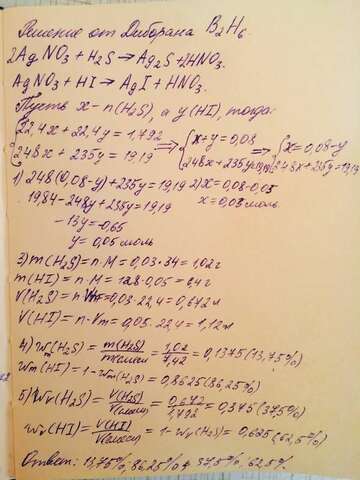 Решение от Диборана B₂H₆.
2AgNO₃ + H₂S → Ag₂S + 2HNO₃.
AgNO₃ + HI → AgI + HNO₃.
Пусть x – n(H₂S), а y (HI), тогда:
{22,4x + 22,4y = 1,792 ⇒ {x + y = 0,08 ⇒ {x = 0,08 - y
{248x + 235y = 19,19 {248x + 235y = 19,19 {248x + 235y = 19,19
1) 248(0,08 - y) + 235y = 19,19 2) x = 0,08 - 0,05
19,84 - 248y + 235y = 19,19 x = 0,03 моль
-13y = -0,65
y = 0,05 моль
3) m(H₂S) = n·M = 0,03·34 = 1,02г
m(HI) = n·M = 128·0,05 = 6,4г
V(H₂S) = n·Vm = 0,03·22,4 = 0,672л
V(HI) = n·Vm = 0,05·22,4 = 1,12л
4) Wm(H₂S) = m(H₂S)/m(смеси) = 1,02/7,42 = 0,1375 (13,75%)
Wm(HI) = 1 - Wm(H₂S) = 0,8625 (86,25%)
5) Wv(H₂S) = V(H₂S)/V(смеси) = 0,672/1,792 = 0,375 (37,5%)
Wv(HI) = V(HI)/V(смеси) = 1 - Wv(H₂S) = 0,625 (62,5%)
Ответ: 13,75%, 86,25% и 37,5%, 62,5%.